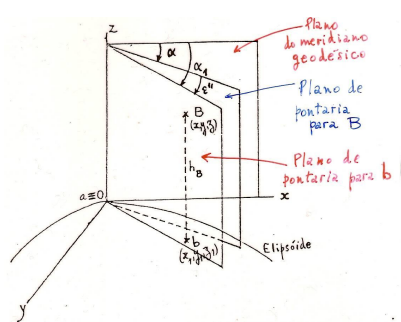 z
Plano
do meridiano
geodésico
α
α₁
ε"
Plano de
pontaria
para B
B
(x,y,z)
Plano de
pontaria para b
h_B
a≡0
x
b
(x₁,y₁,z₁)
Elipsóide
y